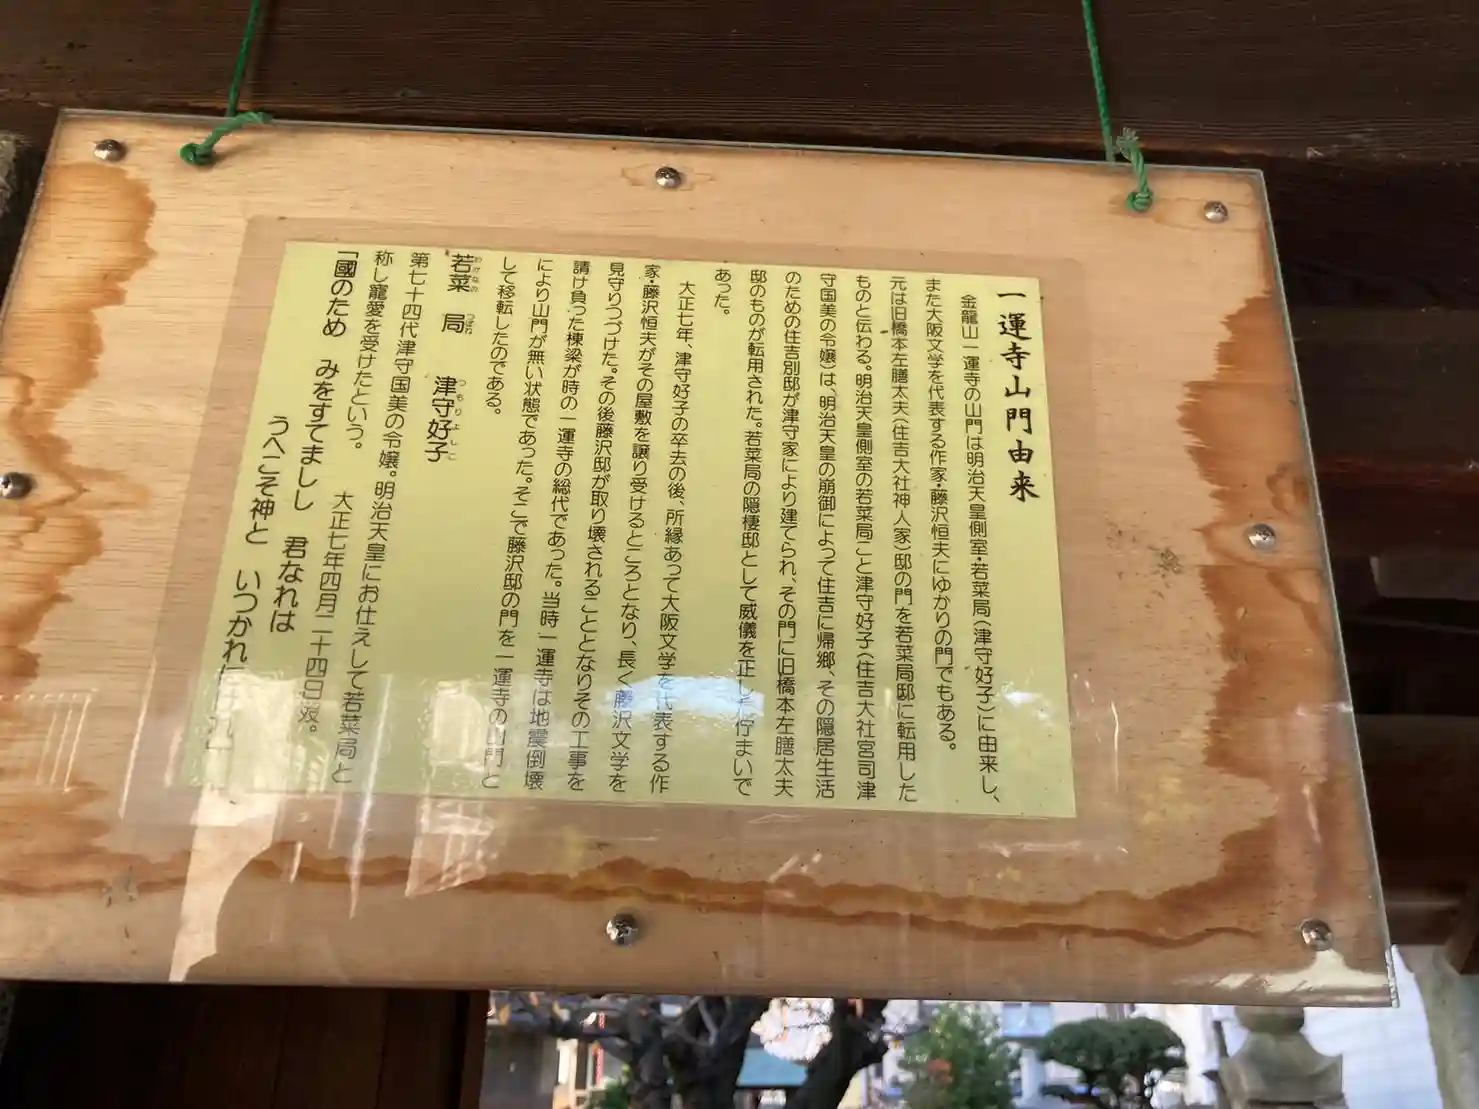 一運寺山門由来
金龍山一運寺の山門は明治天皇側室・若菜局（津守好子）に由来し、
また大阪文学を代表する作家・藤沢恒夫にゆかりの門でもある。
元は旧橋本左膳太夫（住吉大社神人家）邸の門を若菜局邸に転用した
ものと伝わる。明治天皇側室の若菜局こと津守好子（住吉大社宮司津
守国美の令嬢）は、明治天皇の崩御によって住吉に帰郷、その隠居生活
のための住吉別邸が津守家により建てられ、その門に旧橋本左膳太夫
邸のものが転用された。若菜局の隠棲邸として威儀を正した佇まいで
あった。
大正七年、津守好子の卒去の後、所縁あって大阪文学を代表する作
家・藤沢恒夫がその屋敷を譲り受けるところとなり、長く藤沢文学を
見守りつづけた。その後藤沢邸が取り壊されることとなりその工事を
請け負った棟梁が時の一運寺の総代であった。当時一運寺は地震倒壊
により山門が無い状態であった。そこで藤沢邸の門を一運寺の山門と
して移転したのである。
若菜 局 津守好子
わかなの つぼね つもりよしこ
第七十四代津守国美の令嬢。明治天皇にお仕えして若菜局と
称し寵愛を受けたという。 大正七年四月二十四日歿。
「國のため みをすてましし 君なれは
うへこそ神と いつかれ